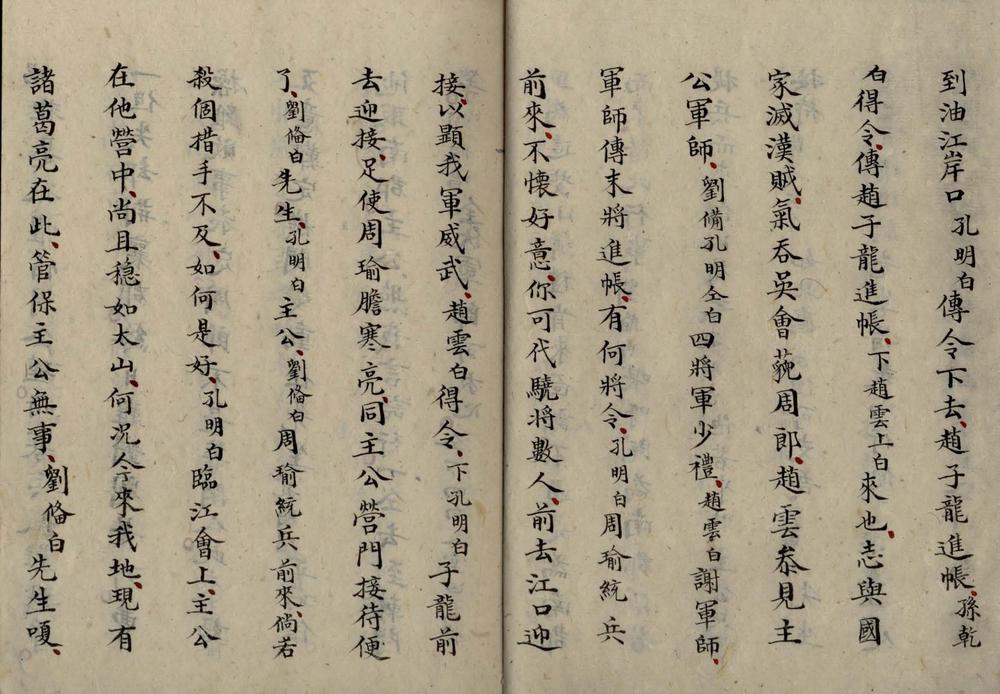 到油江岸口孔明白傳令下去、趙子龍進帳、孫乾
白得令、傳趙子龍進帳、下趙雲上白來也、志與國
家滅漢賊、氣吞吳會藐周郎、趙雲叅見主
公軍師、劉備孔明仝白四將軍少禮、趙雲白謝軍師、
軍師傳末將進帳、有何將令、孔明白周瑜統兵
前來、不懷好意、你可代驍將數人、前去江口迎
接、以顯我軍威武、趙雲白得令、下孔明白子龍前
去迎接、足使周瑜膽寒、亮同主公營門接待便
了、劉俻白先生、孔明白主公、劉俻白周瑜統兵前來、倘若
殺個措手不及、如何是好、孔明白臨江會上、主公
在他營中、尚且穩如太山、何况今來我地、現有
諸葛亮在此、管保主公無事、劉俻白先生嗄、